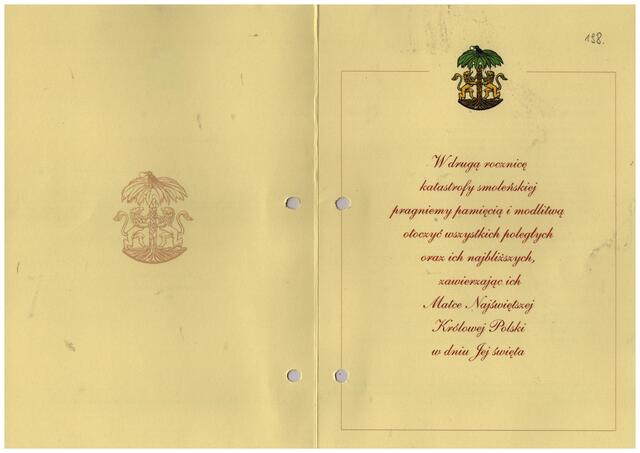 198.
W drugą rocznicę
katastrofy smoleńskiej
pragniemy pamięcią i modlitwą
otoczyć wszystkich poległych
oraz ich najbliższych,
zawierzając ich
Matce Najświętszej
Królowej Polski
w dniu Jej święta